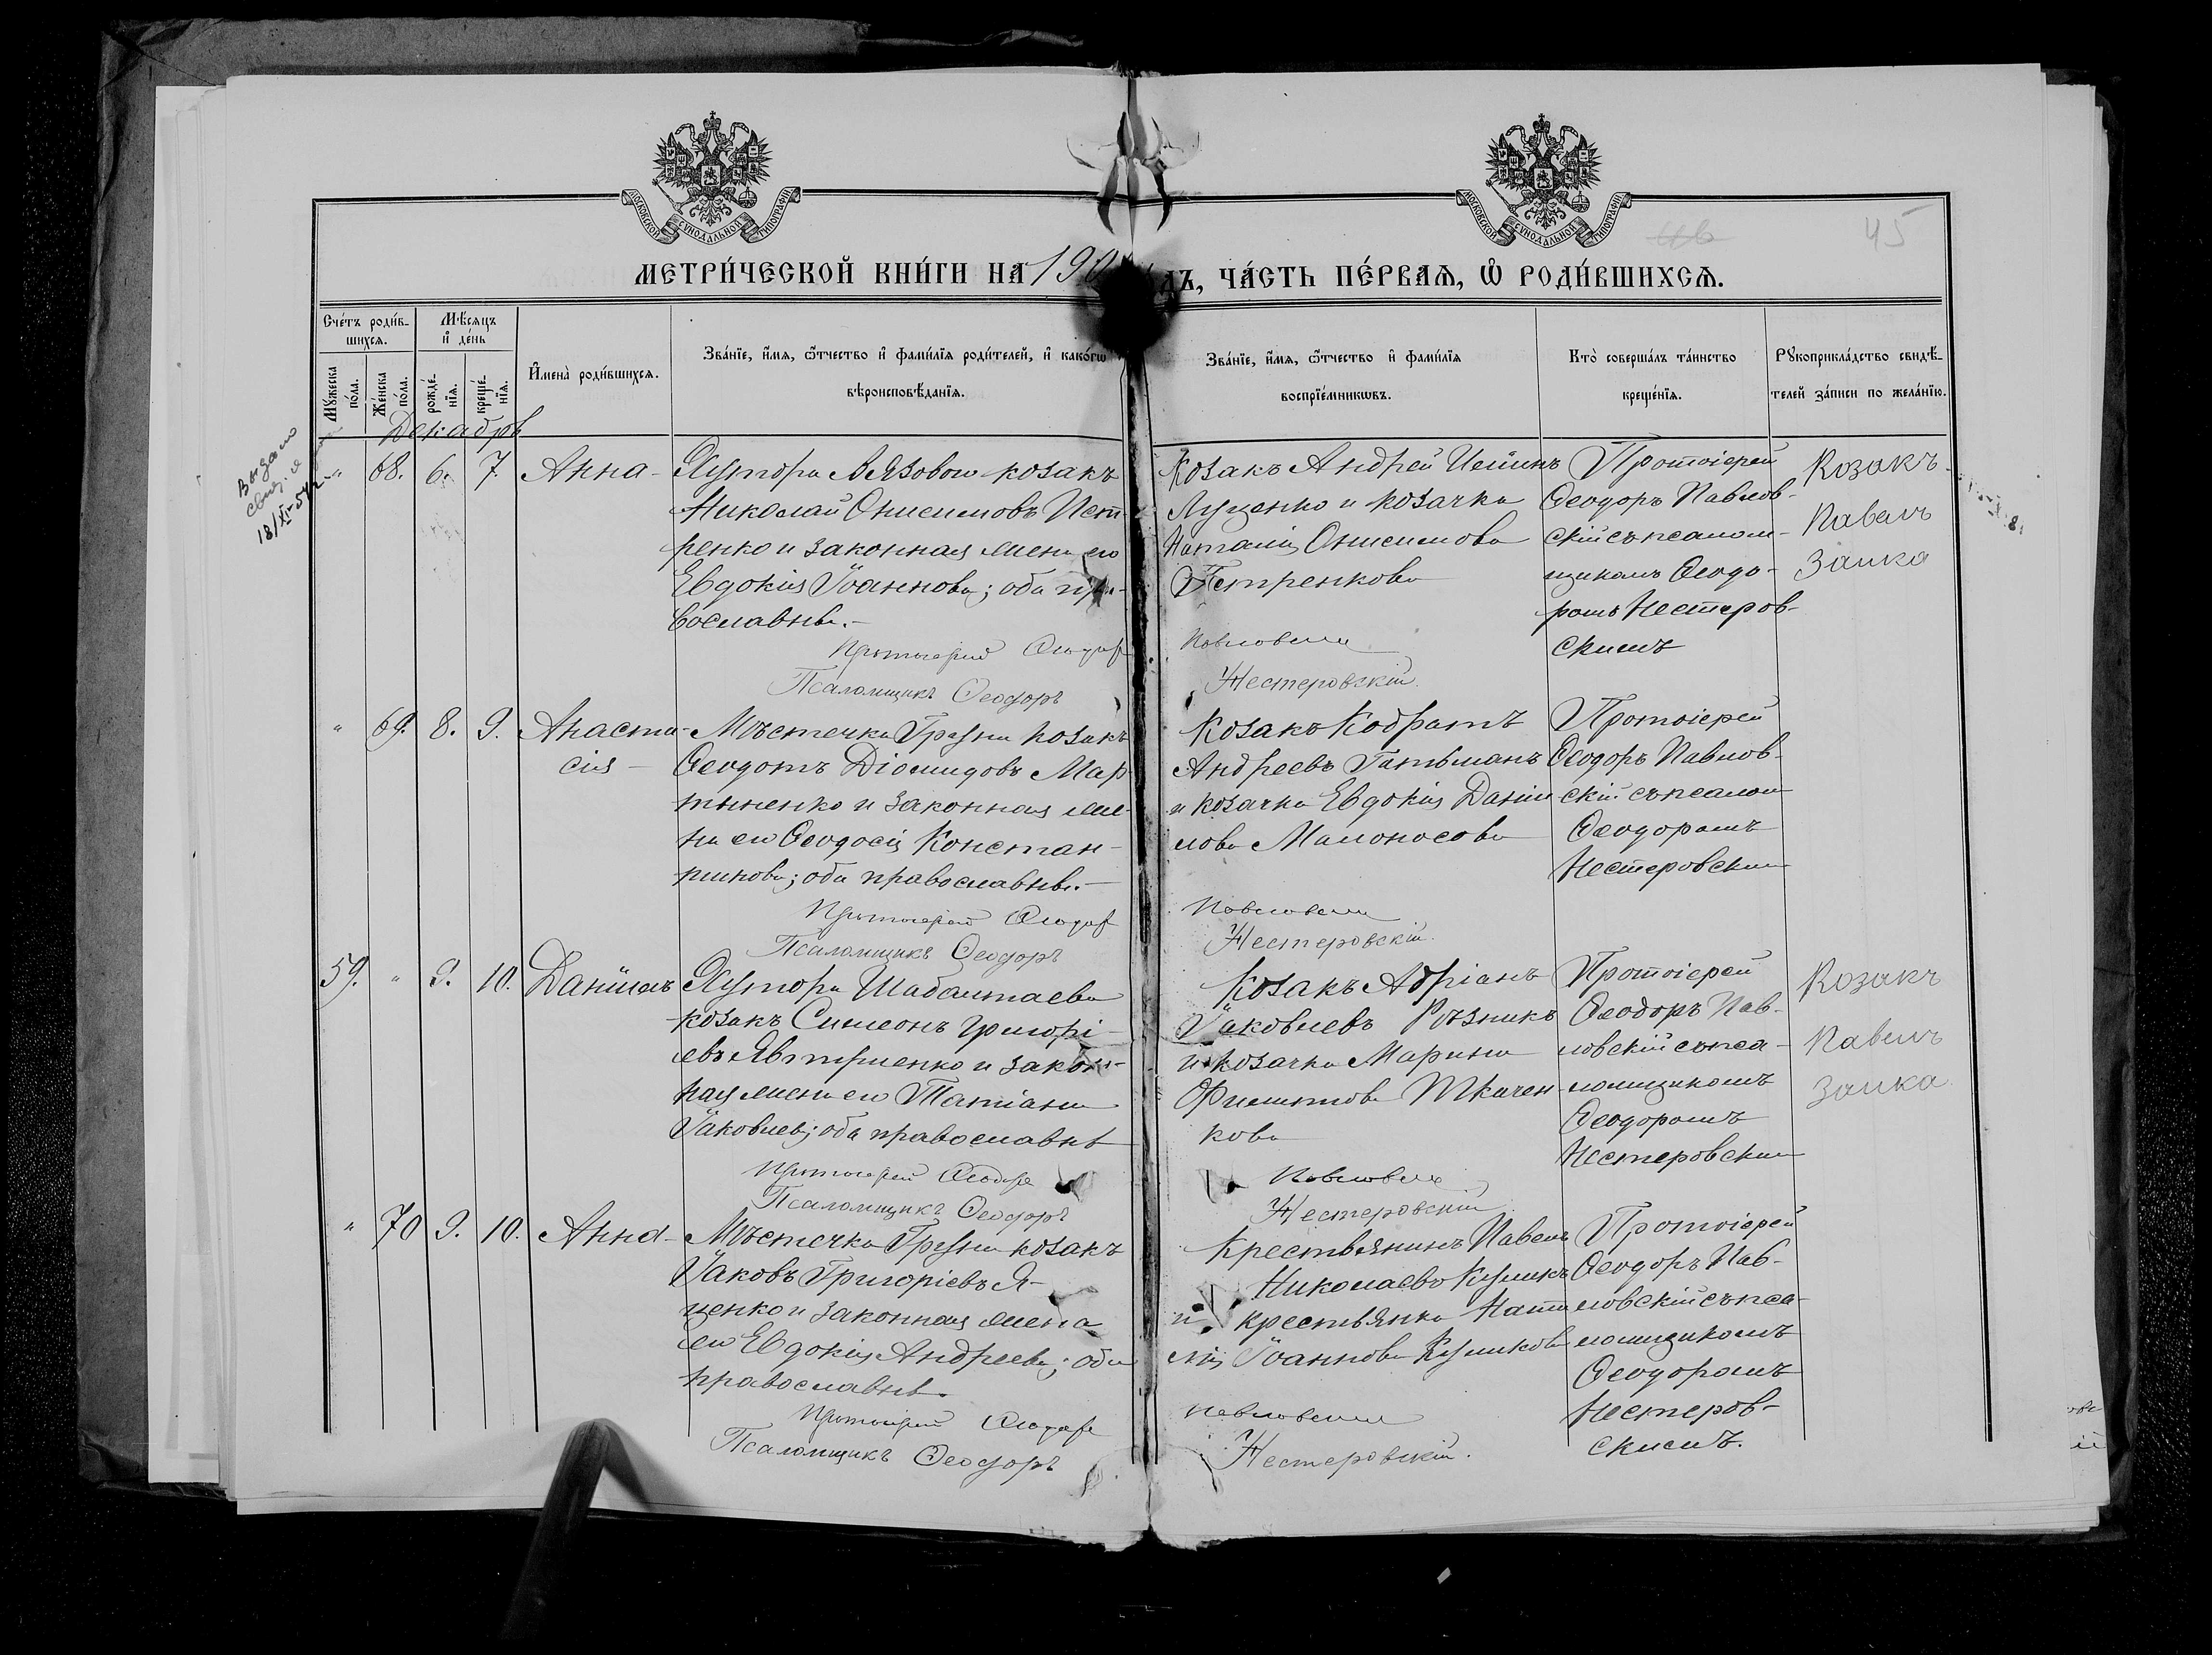 МОСКОВСКОЙ СУНОДАЛЬНОЙ ТИПОГРАФІИ
МОСКОВСКОЙ СУНОДАЛЬНОЙ ТИПОГРАФІИ
45
МЕТРИ́ЧЕСКОЙ КНИ́ГИ НА 190
ДЪ, ЧА́СТЬ ПЕ́РВАѦ, Ѽ РОДИ́ВШИХСѦ.
Сче́тъ роди́в-
шихсѧ.
Мꙋ́жеска
по́ла.
Же́нска
по́ла.
Мѣ́сѧцъ
и҆ де́нь
рожде́-
нїѧ.
креще́-
нїѧ.
И҆мена̀ роди́вшихсѧ.
Зва́нїе, и҆́мѧ, ѻ҆́тчество и҆ фами́лїѧ роди́телей, и҆ како́гѡ
вѣроисповѣ́данїѧ.
Зва́нїе, и҆́мѧ, ѻ҆́тчество и҆ фами́лїѧ
воспрїе́мникѡвъ.
Кто̀ соверша́лъ та́инство
креще́нїѧ.
Рꙋкоприкла́дство свидѣ́-
телей за́писи по жела́нїю.
Декабрь
Выдано
свид. я
18/XI-54 г.
" 68. 6. 7. Анна-
Хутора Вязового козакъ
Николай Онисимовъ Пет-
ренко и законная жена его
Евдокія Іоаннова; оба пра-
вославны.-
Протоіерей Феодоръ
Псаломщикъ Феодоръ
Козакъ Андрей
Луценко и козачка
Наталія Онисимова
Петренкова
Павловскій
Нестеровскій
Протоіерей
Феодоръ Павлов-
скій съ псалом-
щикомъ Феодо-
ромъ Нестеров-
скимъ
Козакъ
Павелъ
Заика
" 69. 8. 9. Анаста-
сія -
Мѣстечка Груни козакъ
Феодотъ Діомидовъ Мар-
тыненко и законная же-
на его Феодосія Констан-
тинова; оба православны.-
Протоіерей Феодоръ
Псаломщикъ Феодоръ
Козакъ Кодратъ
Андреевъ Гатьманъ
и козачка Евдокія Даніи-
лова Малоносова
Павловскій
Нестеровскій
Протоіерей
Феодоръ Павлов-
скій съ псалом
Феодоромъ
Нестеровским
59. " 9. 10. Даніилъ
Хутора Шабалтаева
козакъ Симеонъ Григорі-
евъ Явтушенко и закон-
ная жена его Татіана
Іаковлева; оба православны
Протоіерей Феодоръ
Псаломщикъ Феодоръ
Козакъ Адріанъ
Іаковлевъ Рѣзникъ
и козачка Марина
Филиппова Ткачен-
кова
Павловскій
Нестеровскій
Протоіерей
Феодоръ Пав-
ловскій съ пса-
ломщикомъ
Феодоромъ
Нестеровским
Козакъ
Павелъ
Заика
" 70 9. 10. Анна-
Мѣстечка Груни козакъ
Іаковъ Григоріевъ Я-
ценко и законная жена
его Евдокія Андреева; оба
православны.
Протоіерей Феодоръ
Псаломщикъ Феодоръ
Крестьянинъ Павелъ
Николаевъ Куликъ
и крестьянка Ната-
лія Іоаннова Куликова
Павловскій
Нестеровскій.
Протоіерей
Феодоръ Пав-
ловскій съ пса-
ломщикомъ
Феодоромъ
Нестеров-
скимъ.